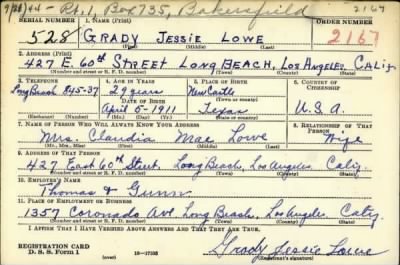 9/28/44 - Rt. 1, Box 735, Bakersfield 2167
SERIAL NUMBER 1. NAME (Print) ORDER NUMBER
528 GRADY JESSIE LOWE 2167
(First) (Middle) (Last)
2. ADDRESS (Print)
427 E. 60th STREET LONG BEACH, LOS ANGELES, CALIF.
(Number and street or R. F. D. number) (Town) (County) (State)
3. TELEPHONE 4. AGE IN YEARS 5. PLACE OF BIRTH 6. COUNTRY OF CITIZENSHIP
Long Beach 845-37 29 years New Castle
DATE OF BIRTH (Town or county)
April 5-1911 Texas U.S.A.
(Exchange) (Number) (Mo.) (Day) (Yr.) (State or country)
7. NAME OF PERSON WHO WILL ALWAYS KNOW YOUR ADDRESS 8. RELATIONSHIP OF THAT PERSON
Mrs. Claudia Mae Lowe Wife
(Mr., Mrs., Miss) (First) (Middle) (Last)
9. ADDRESS OF THAT PERSON
427 East 60th Street, Long Beach, Los Angeles, Calif.
(Number and street or R. F. D. number) (Town) (County) (State)
10. EMPLOYER'S NAME
Thomas & Gunn
11. PLACE OF EMPLOYMENT OR BUSINESS
1357 Coronado Ave. Long Beach, Los Angeles Calif.
(Number and street or R. F. D. number) (Town) (County) (State)
I AFFIRM THAT I HAVE VERIFIED ABOVE ANSWERS AND THAT THEY ARE TRUE.
REGISTRATION CARD
D. S. S. Form 1 (over) 16-17105 Grady Jessie Lowe
(Registrant's signature)